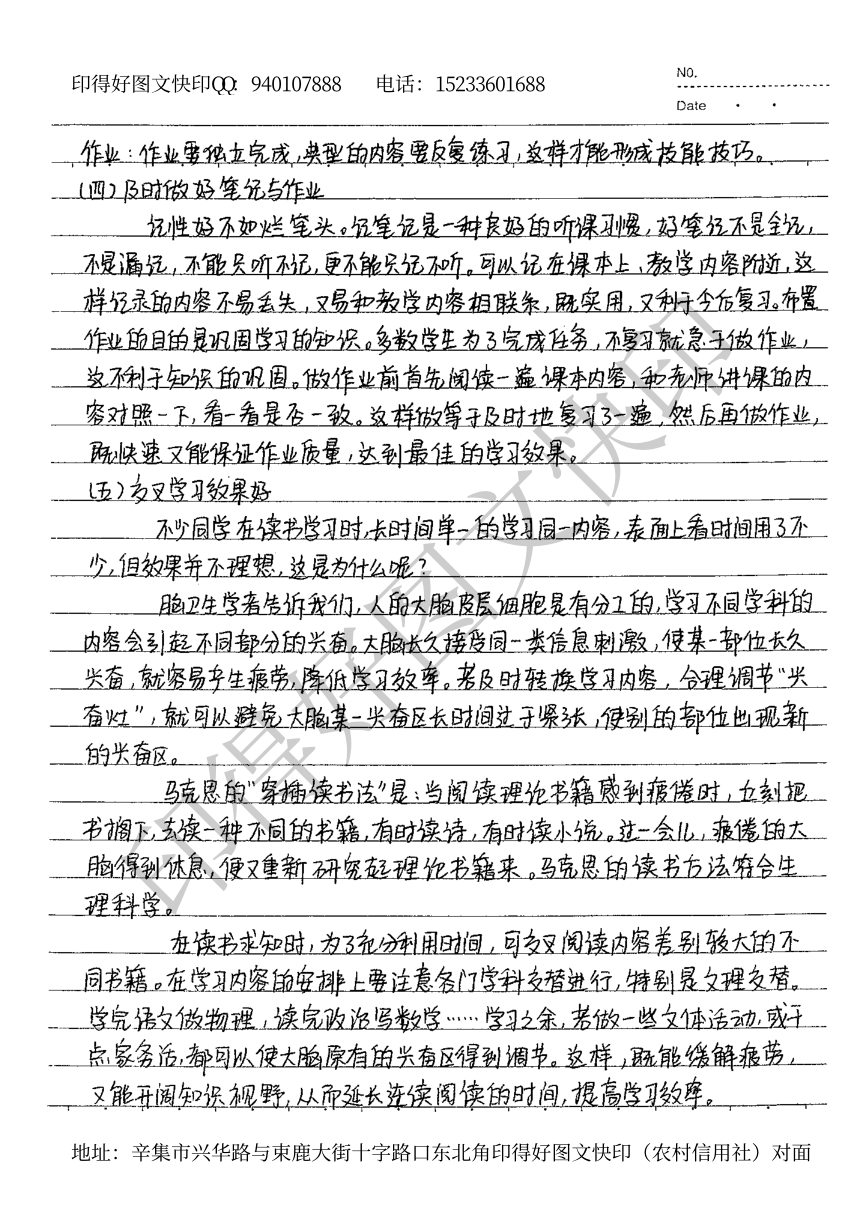 印得好图文快印QQ: 940107888 电话：15233601688
NO.
Date
作业：作业要独立完成，典型的内容要反复练习，这样才能形成技能技巧。
(四)及时做好笔记与作业
记性好不如烂笔头。记笔记是一种良好的听课习惯，好笔记不是全记，
不是漏记，不能只听不记，更不能只记不听。可以记在课本上、教学内容附近，这
样记录的内容不易丢失，又易和教学内容相联系，既实用，又利于今后复习。布置
作业的目的是巩固学习的知识。多数学生为了完成任务，不复习就急于做作业，
这不利于知识的巩固。做作业前首先阅读一遍课本内容，和老师讲课的内
容对照一下，看一看是否一致。这样做等于及时地复习了一遍，然后再做作业，
既快速又能保证作业质量，达到最佳的学习效果。
(五)交叉学习效果好
不少同学在读书学习时，长时间单一的学习同一内容，表面上看时间用了不
少，但效果并不理想，这是为什么呢？
脑卫生学者告诉我们，人的大脑皮层细胞是有分工的，学习不同学科的
内容会引起不同部分的兴奋。大脑长久接受同一类信息刺激，使某一部位长久
兴奋，就容易产生疲劳，降低学习效率。若及时转换学习内容，合理调节“兴
奋灶”，就可以避免大脑某一兴奋区长时间过于紧张，使别的部位出现新
的兴奋区。
马克思的“穿插读书法”是：当阅读理论书籍感到疲倦时，立刻把
书搁下，去读一种不同的书籍，有时读诗，有时读小说。过一会儿，疲倦的大
脑得到休息，便又重新研究起理论书籍来。马克思的读书方法符合生
理科学。
在读书求知时，为了充分利用时间，可交叉阅读内容差别较大的不
同书籍。在学习内容的安排上要注意各门学科交替进行，特别是文理交替。
学完语文做物理，读完政治写数学……学习之余，若做一些文体活动，或干
点家务活，都可以使大脑原有的兴奋区得到调节。这样，既能缓解疲劳，
又能开阔知识视野，从而延长连续阅读的时间，提高学习效率。
印得好图文快印
地址：辛集市兴华路与束鹿大街十字路口东北角印得好图文快印（农村信用社）对面